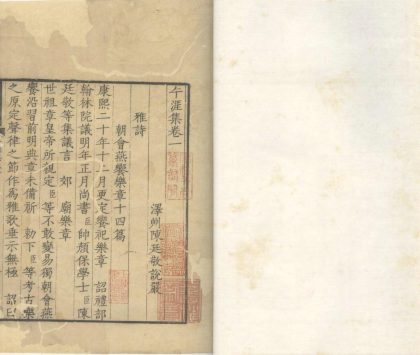 午涯集卷一
澤州陳廷敬說巖
雅詩
朝會燕饗樂章十四篇
康熙二十年十二月更定饗祀樂章 詔禮部
翰林院議明年正月尚書臣帥顏保學士臣陳
廷敬等集議言 郊 廟樂章
世祖章皇帝所親定臣等不敢變易獨朝會燕
饗沿習前明典章未備 勅下臣等考古樂
之原定聲律之節作為雅歌垂示無極 詔曰